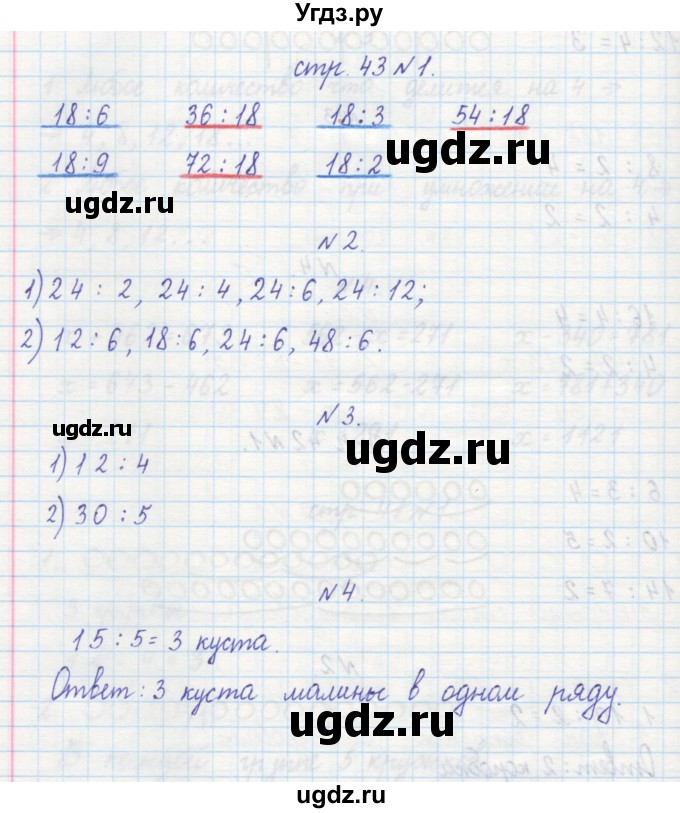 Угдз.ру
стр. 43 №1.
18:6 36:18 18:3 54:18
18:9 72:18 18:2
ugdz.ru
ugdz.ru
№2.
1) 24 : 2, 24 : 4, 24 : 6, 24 : 12;
2) 12 : 6, 18 : 6, 24 : 6, 48 : 6.
№3.
ugdz.ru
ugdz.ru
1) 12 : 4
2) 30 : 5
№4.
15 : 5 = 3 куста.
Ответ: 3 куста малины в одном ряду.
ugdz.ru
ugdz.ru